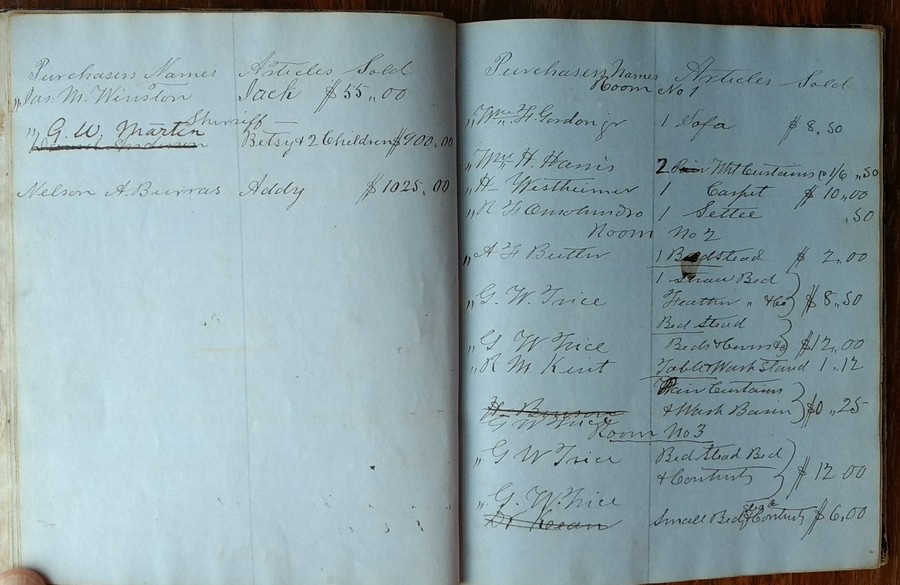 Purchasers Names Articles Sold
" Jas. M. Winston Jack $55,,00
Sherriff
" G. W. Martin Betsy & 2 Children $900,00
Nelson A. Burras Addy $1025,00
Purchasers Names Articles Sold
Room No 1
" Wm. F. Gordon jr 1 Sofa $8.50
" Wm. H. Harris 2 Wht Curtains ,,50
" H. Westheimer 1 Carpet $10,,00
" R F Omohundro 1 Settee ,50
Room No 2
" A F Butler 1 Bedstead $2,,00
1 Straw Bed
" G. W. Trice Feather " &c $8,,50
Bed Stead
" G W Trice Beds & $12,,00
" R M Kent Table & Wash Stand 1,,12
Pair Curtains
H. & Wash Basin $0,,25
G W Trice
Room No 3
" G W Trice Bed Stead Bed
& Contents $12 00
" G. W. Trice
Small Bed Stead & Contents $6,00